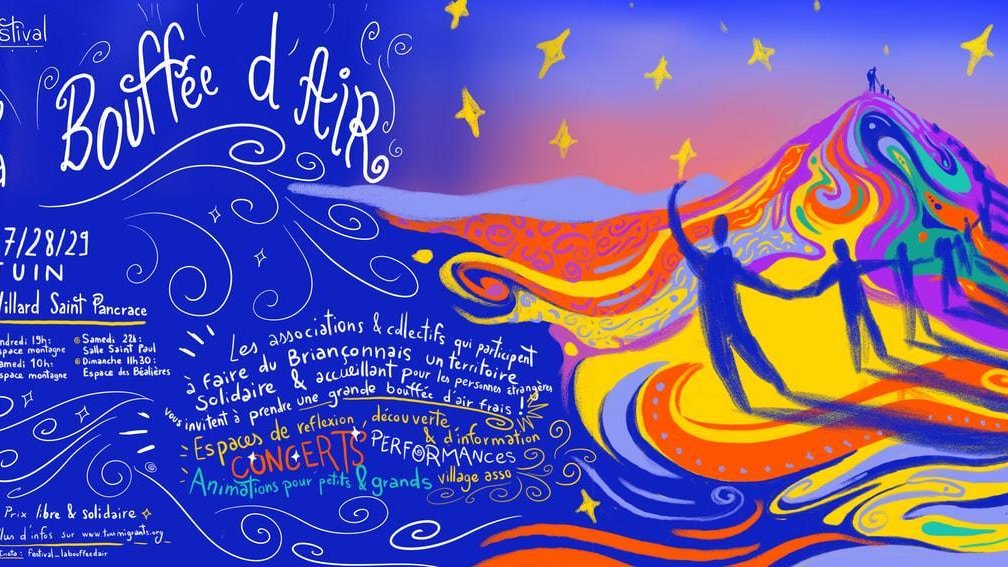 stival
Bouffée d'AiR
7/28/29
JUIN
Villard Saint Pancrace
ndredi 19h:
space montagne
amedi 10h:
space montagne
Samedi 22h:
Salle Saint Paul
Dimanche 11h30:
Espace des Béalières
Les associations & collectifs qui participent
à faire du Briançonnais un territoire
Solidaire & accueillant pour les personnes étrangères
vous invitent à prendre une grande bouffée d'air frais !
Espaces de reflexion, découverte
& d'information
CONCERTS PERFORMANCES
Animations pour petits & grands village asso
Prix libre & solidaire
lus d'infos sur www.tousmigrants.org
Insta: festival_labouffeedair